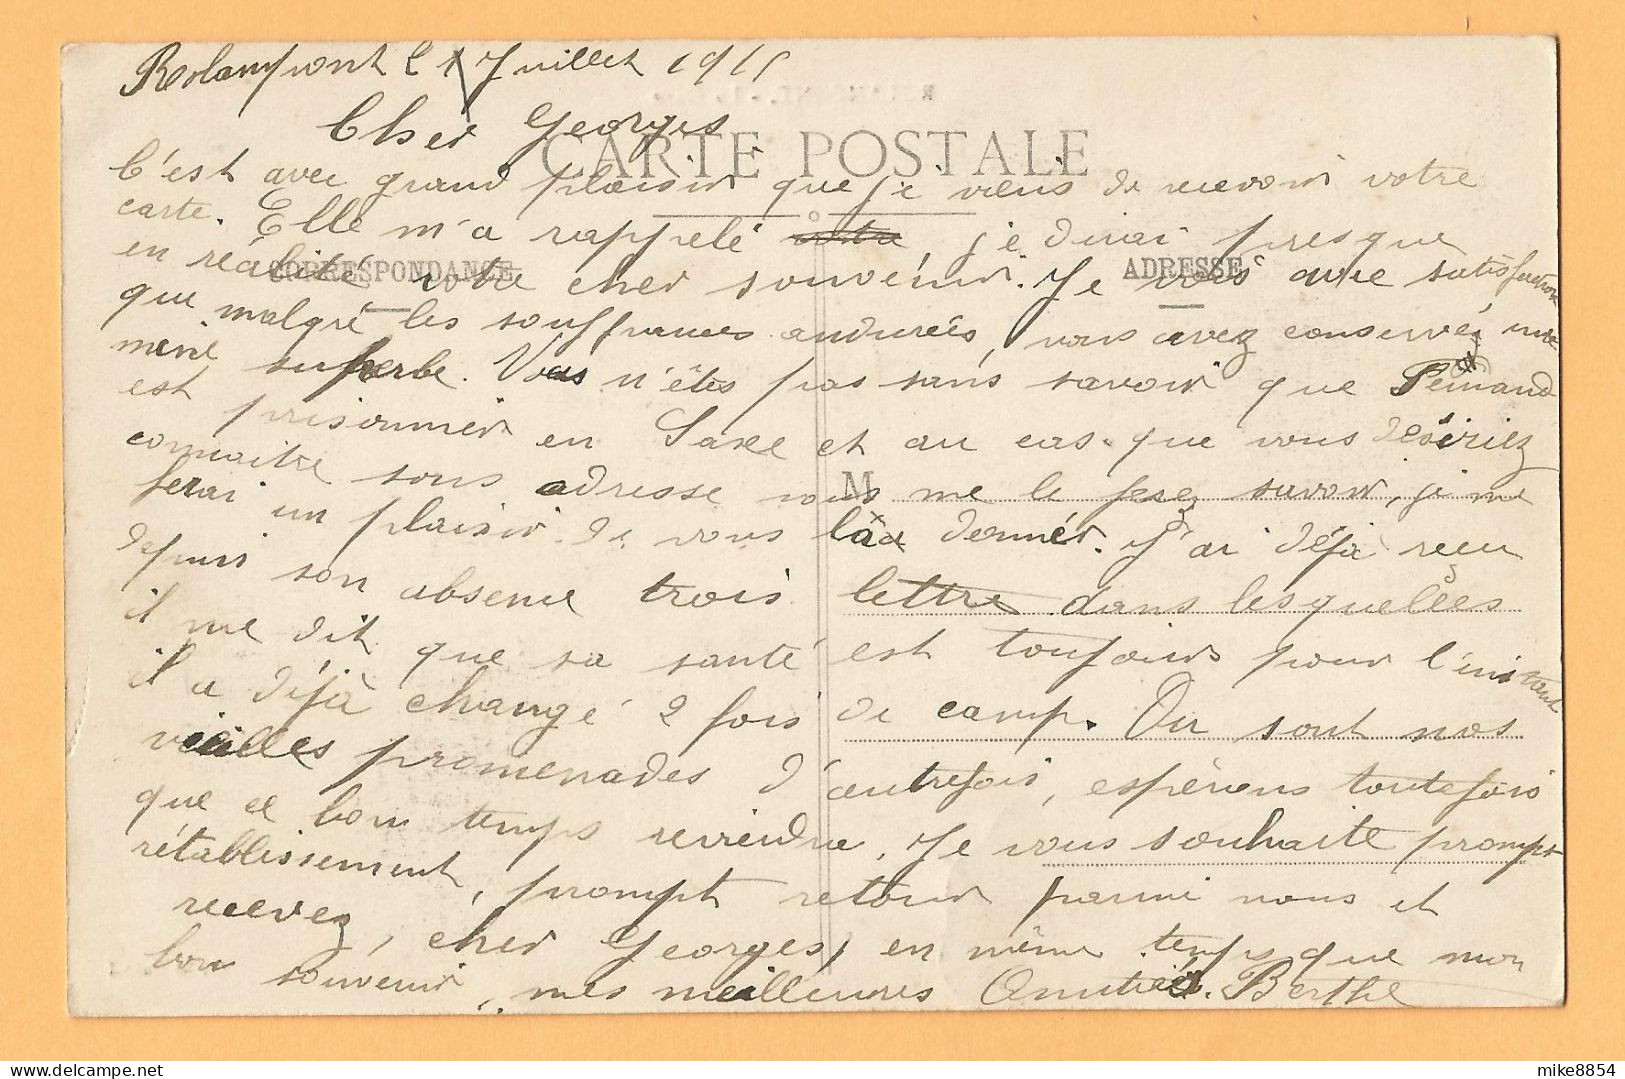 Rolampont le 17 Juillet 1915
Cher Georges
CARTE POSTALE
C'est avec grand plaisir que je viens de recevoir votre
carte. Elle m'a rappelé votre, je dirai presque
CORRESPONDANCE
ADRESSE
en réalité votre cher souvenir. Je vois avec satisfaction
que malgré les souffrances endurées, vous avez conservé une
mine superbe. Vous n'êtes pas sans savoir que Fernand
est prisonnier en Saxe et au cas que vous désiriez
connaitre sous adresse vous me le ferez savoir, je me
M
ferai un plaisir de vous la donner. J'ai déjà reçu
depuis son absence trois lettre dans lesquelles
il me dit que sa santé est toujours pour l'instant
il a déjà changé 2 fois de camp. Ou sont nos
vieilles promenades d'autrefois, espérons toutefois
que ce bon temps reviendra. Je vous souhaite prompt
rétablissement, prompt retour parmi nous et
recevez, cher Georges, en même temps que mon
bon souvenir, mes meilleures Amitiés. Berthe
mike8854